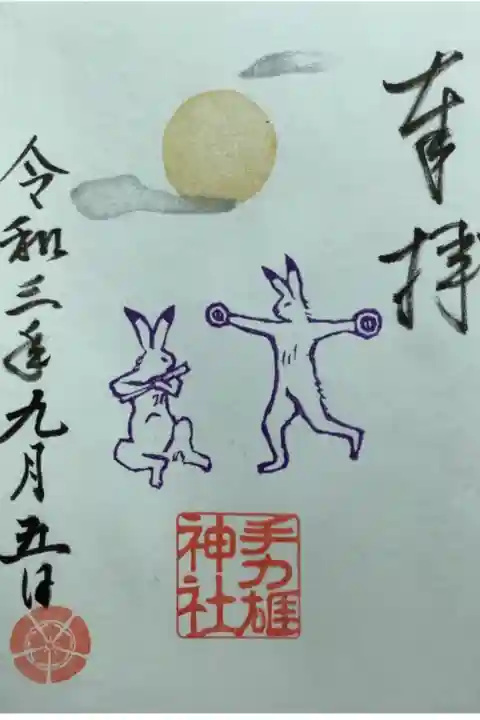 奉拝
手力雄
神社
令和三年九月五日